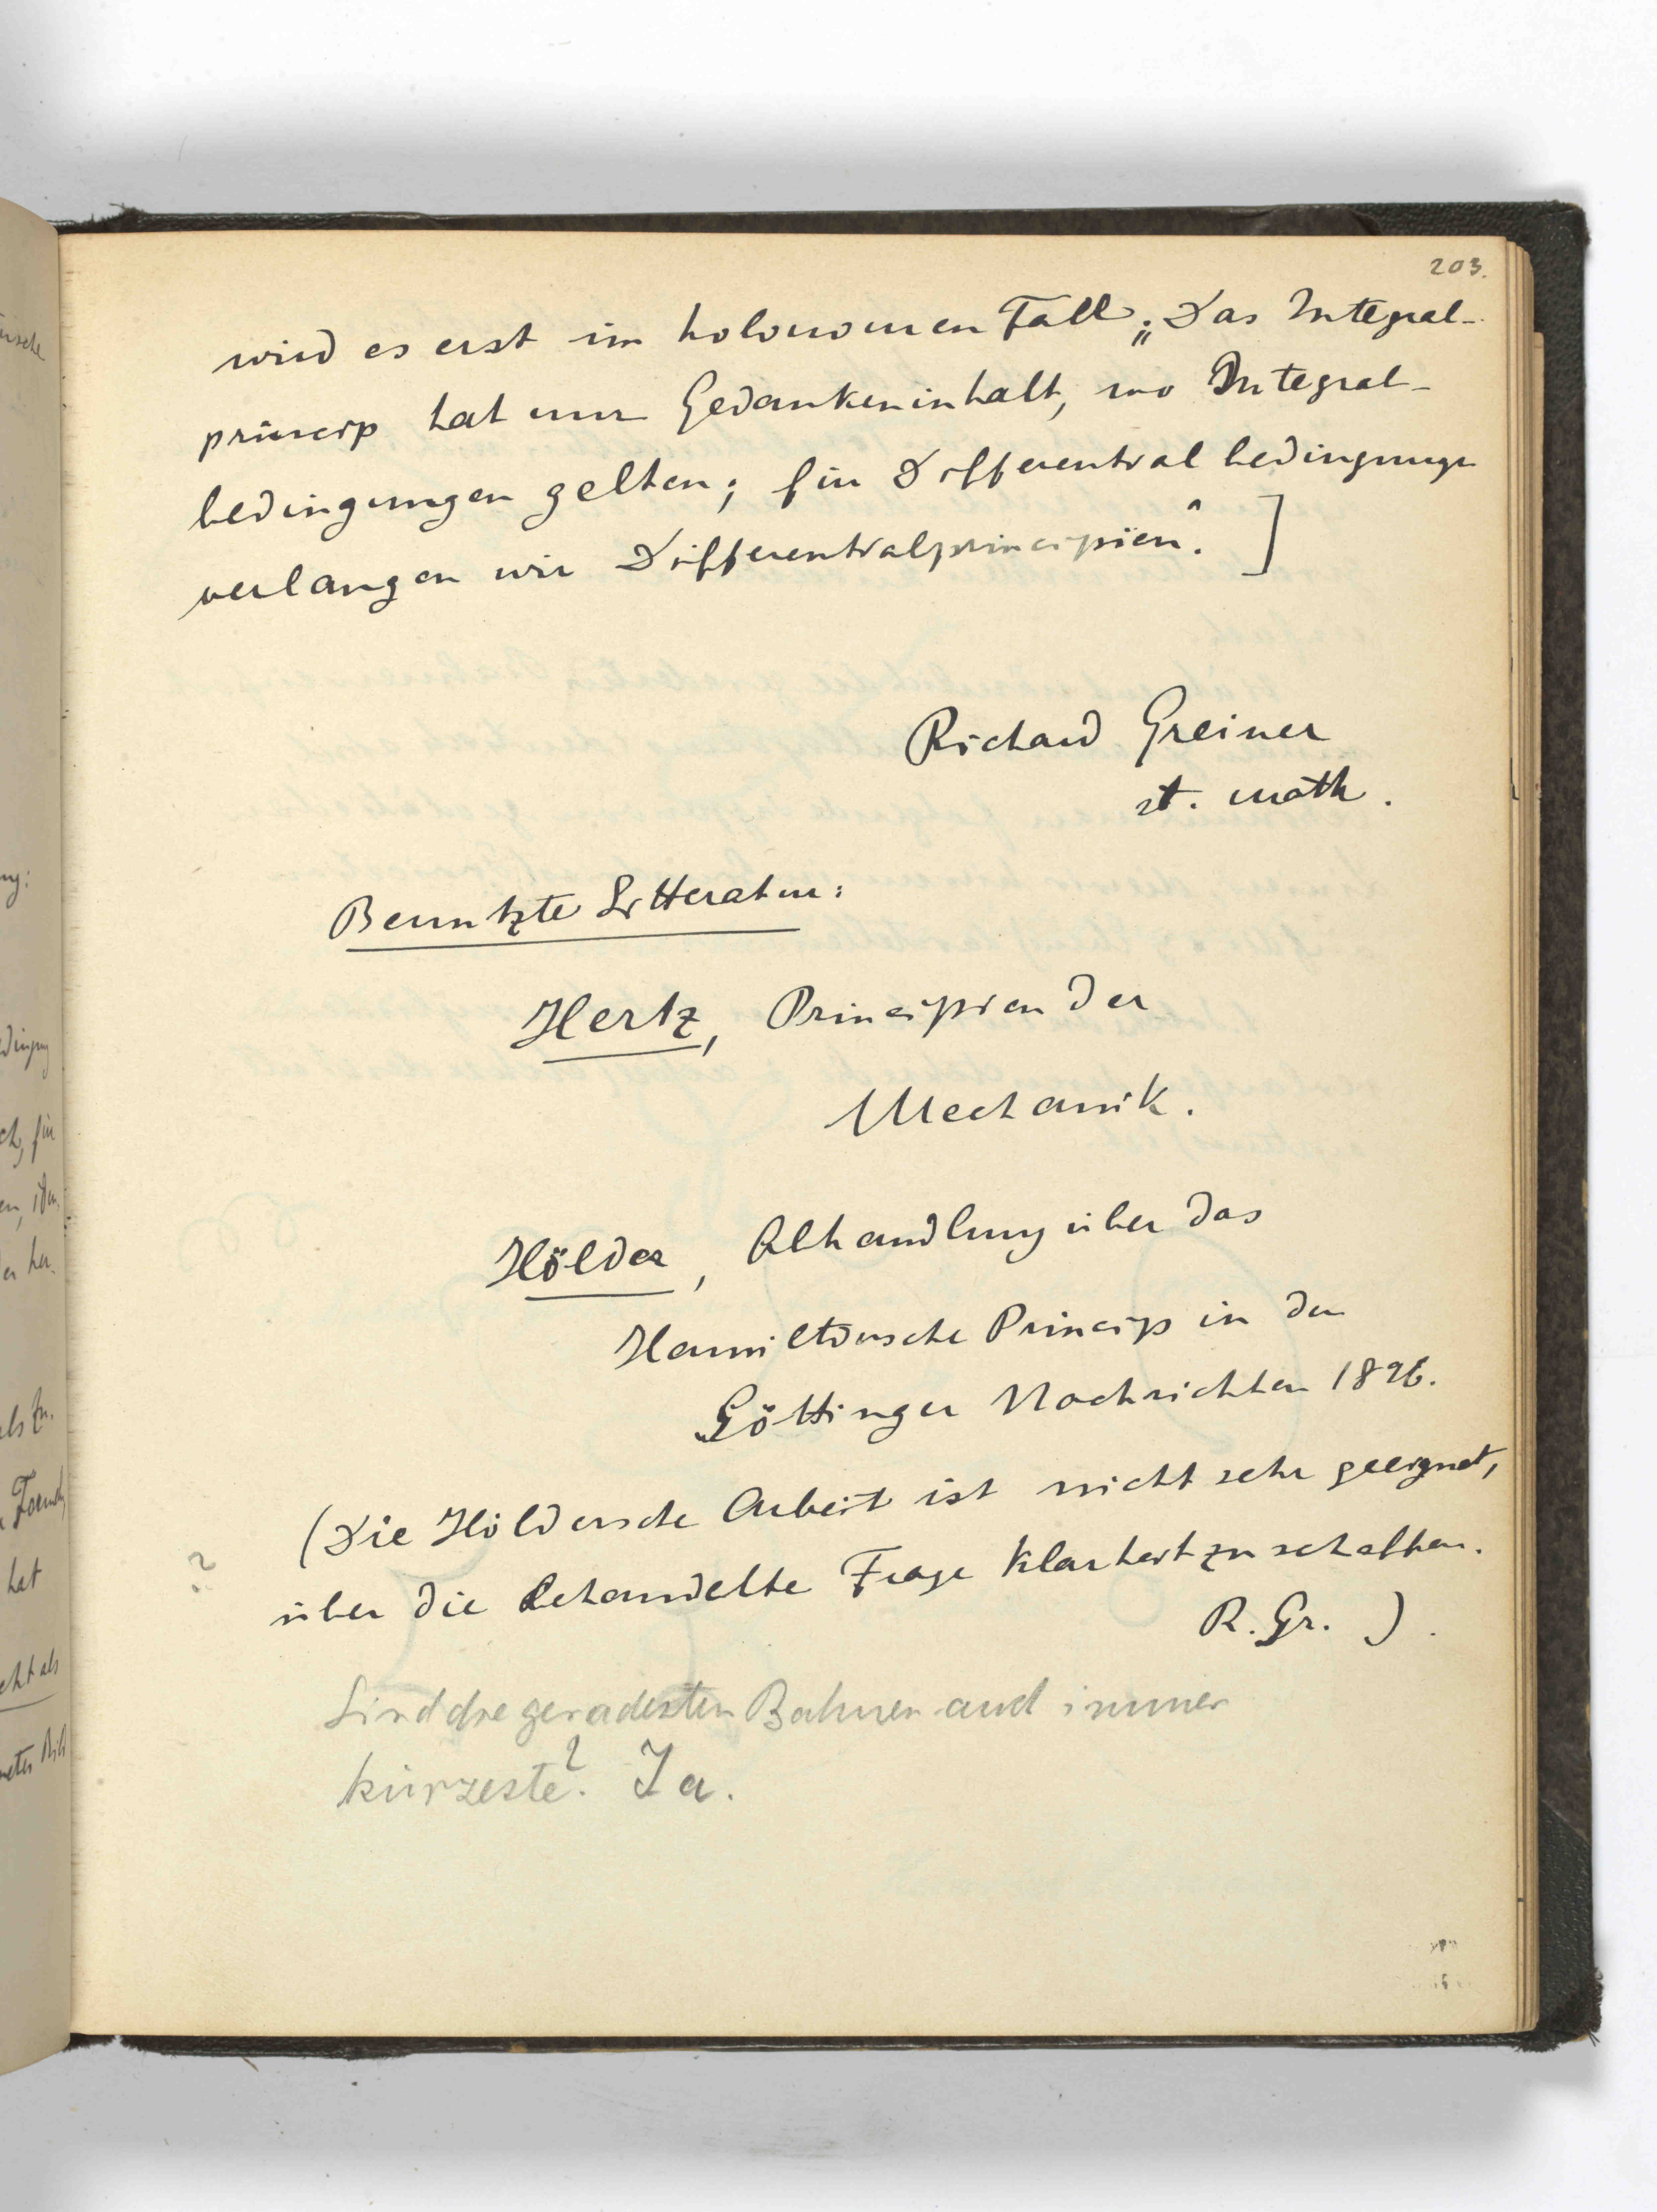 203.
wird es erst im holonomen Fall. „Das Integral-
princip hat nur Gedankeninhalt, wo Integral-
bedingungen gelten; für Differentialbedingungen
verlangen wir Differentialprincipien“. ]
Richard Greiner
st. math.
Benutzte Litteratur:
Hertz, Principien der
Mechanik.
Hölder, Abhandlung über das
Hamiltonsche Princip in den
Göttinger Nachrichten 1896.
(Die Höldersche Arbeit ist nicht sehr geeignet,
? über die behandelte Frage Klarheit zu schaffen.
R. Gr. ).
Sind die geradesten Bahnen auch immer
kürzeste? Ja.